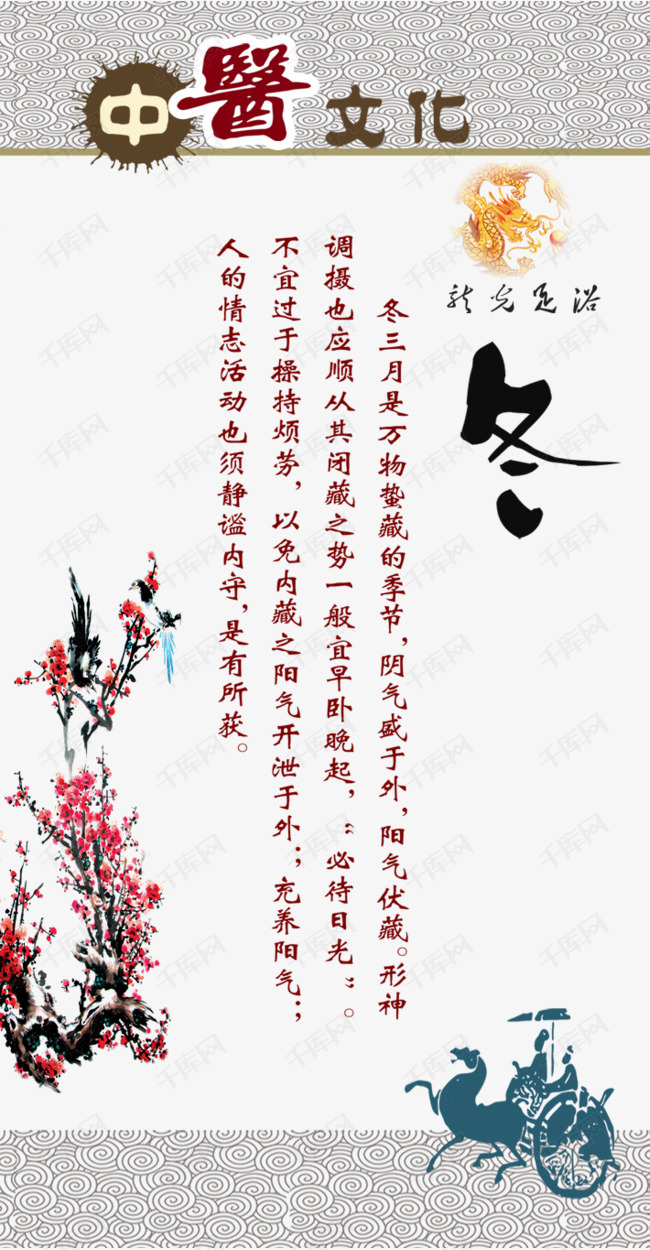 中醫文化
龙光足浴
冬
冬三月是万物蛰藏的季节，阴气盛于外，阳气伏藏。形神
调摄也应顺从其闭藏之势一般宜早卧晚起，“必待日光”。
不宜过于操持烦劳，以免内藏之阳气开泄于外；充养阳气；
人的情志活动也须静谧内守，是有所获。
千库网